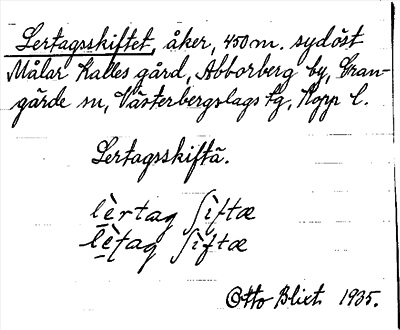 Lertagsskiftet, åker, 450 m. sydöst
Målar Kalles gård, Abborberg by, Gran-
gärde sn, Västerbergslags tg, Kopp l.
Lertagsskiftä.
lèrtag ʃìftæ
lètag ʃìftæ
Otto Blixt 1935.